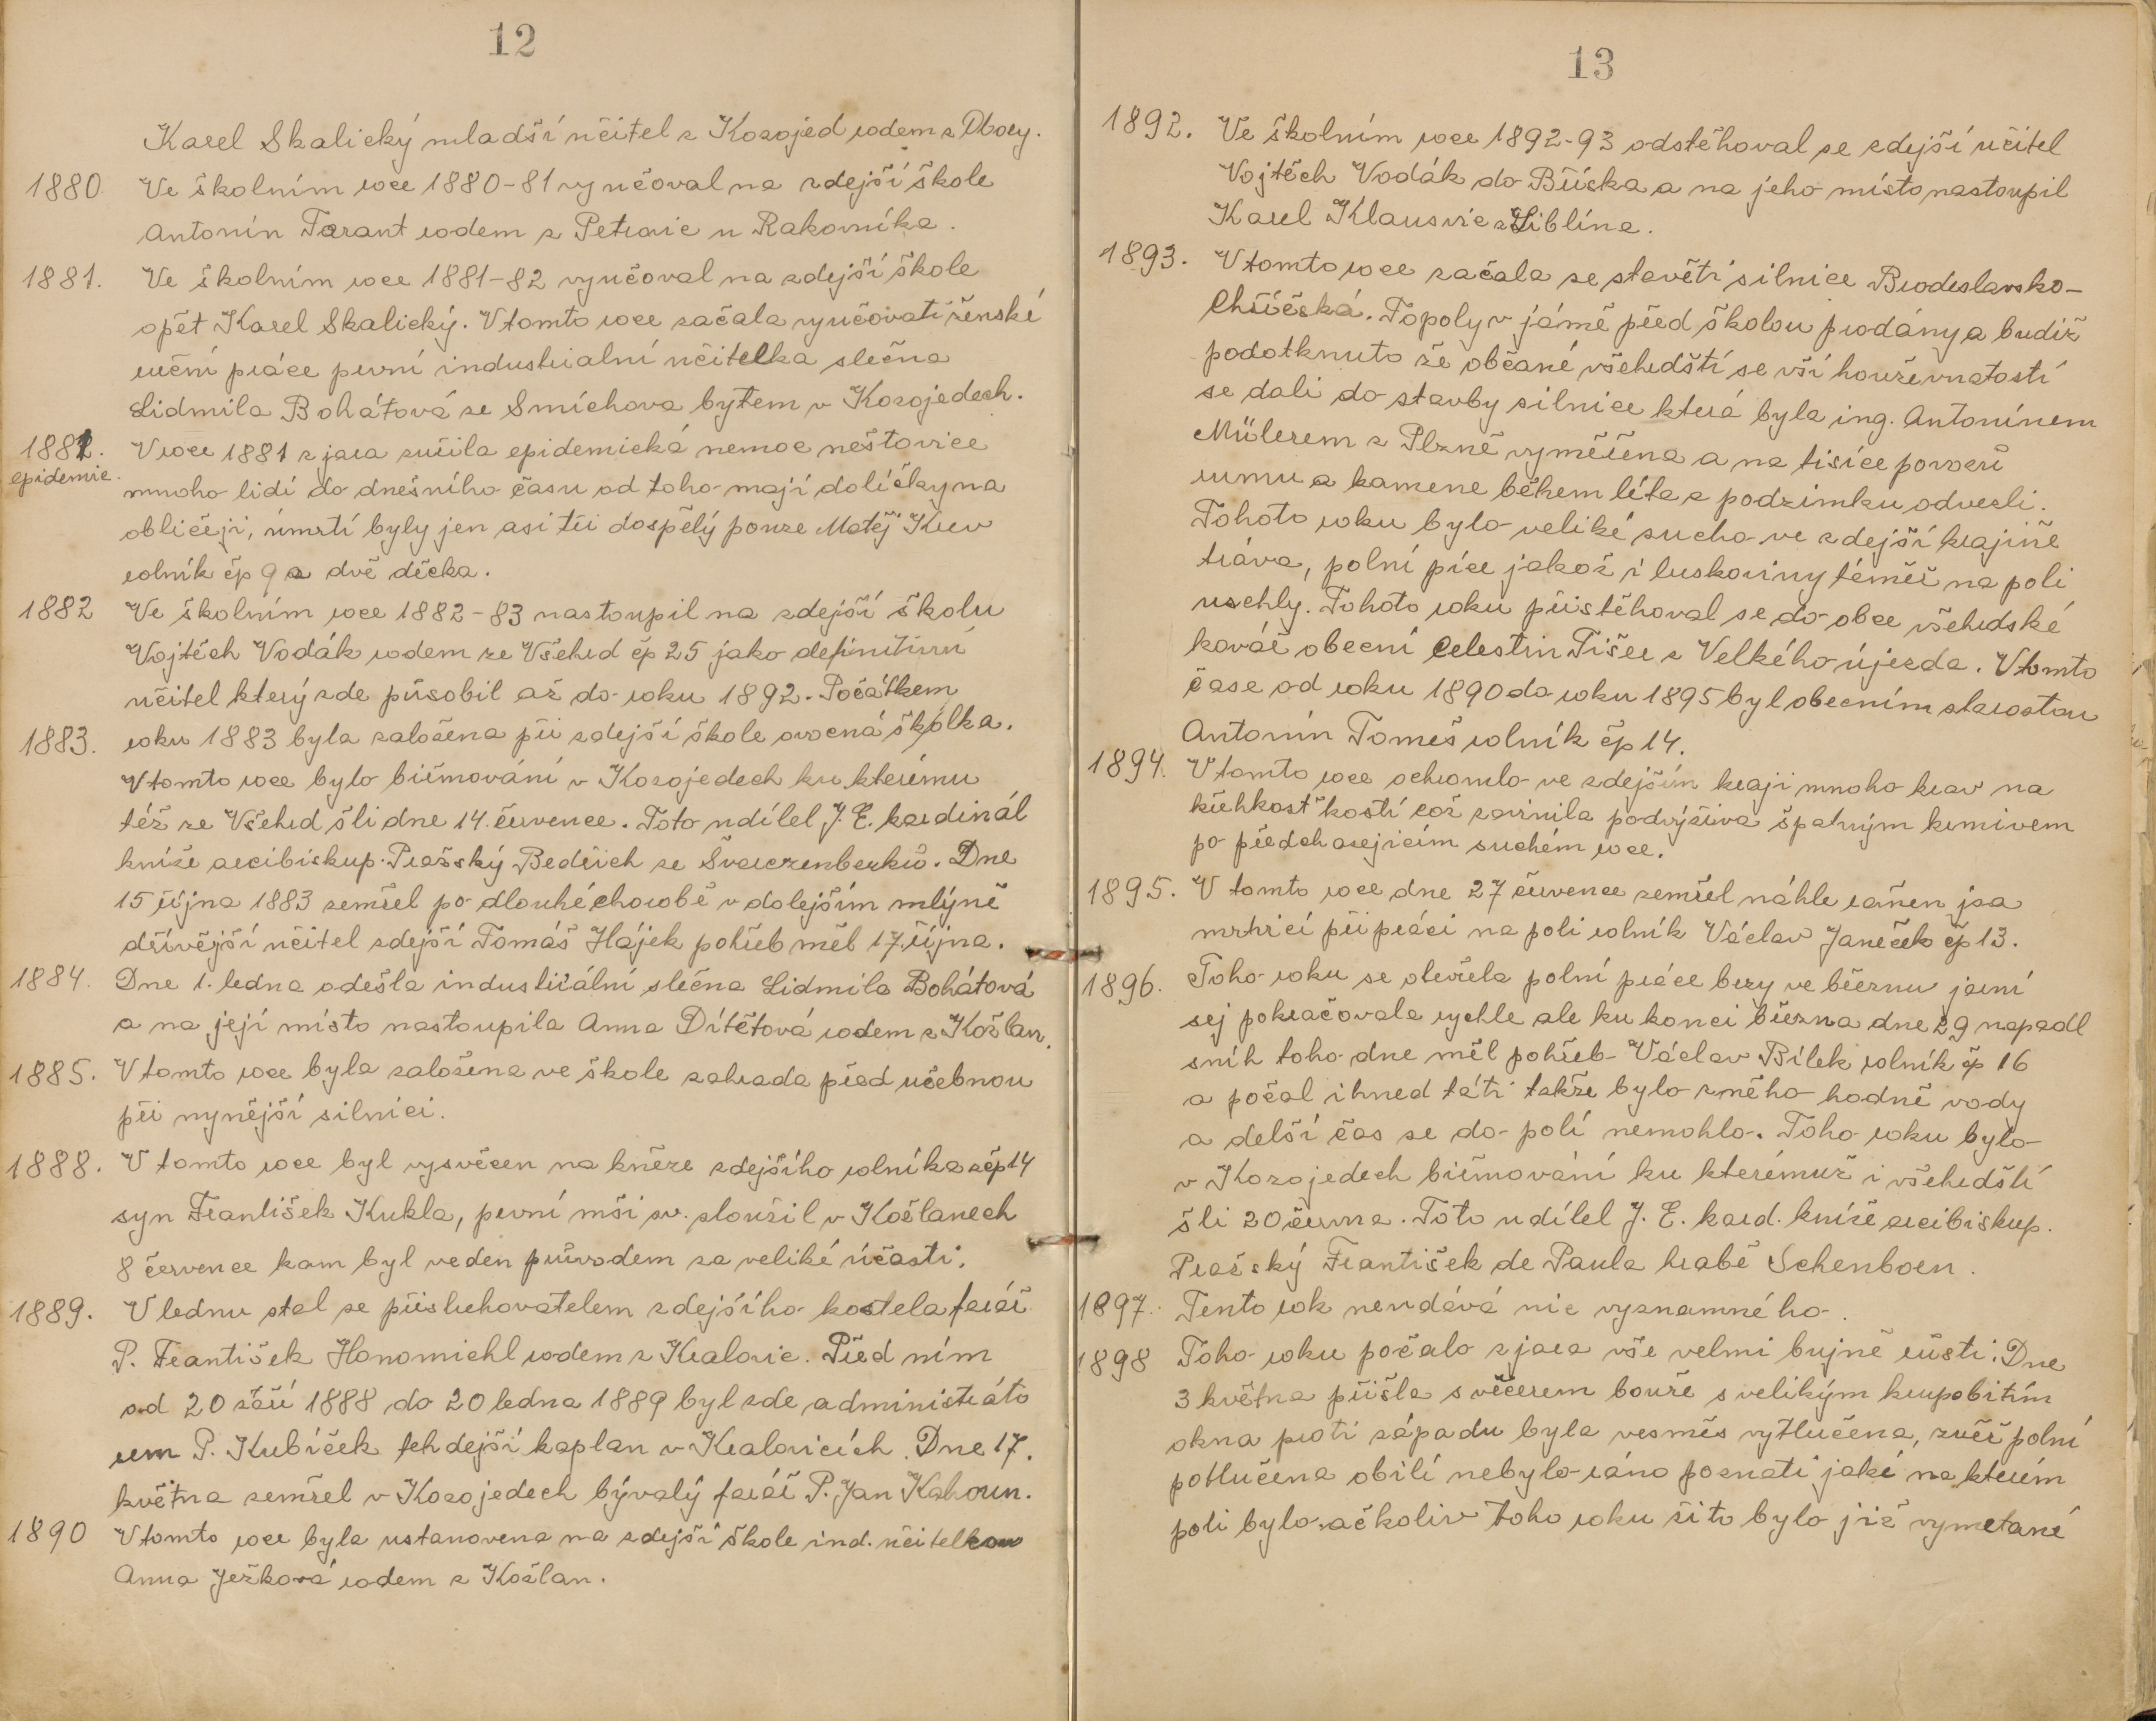 12
Karel Skalický mladší učitel z Kozojed rodem z Obory.
1880 Ve školním roce 1880-81 vyučoval na zdejší škole
Antonín Tarant rodem z Petrovic u Rakovníka.
1881. Ve školním roce 1881-82 vyučoval na zdejší škole
opět Karel Skalický. V tomto roce začala vyučovati ženské
ruční práce první industrialní učitelka slečna
Lidmila Bohátová ze Smíchova bytem v Kozojedech.
1881. V roce 1881 z jara zuřila epidemická nemoc neštovice
epidemie. mnoho lidí do dnešního času od toho mají dolíčky na
obličeji, úmrtí byly jen asi tři dospělý pouze Matěj Krev
rolník čp 9 a dvě děcka.
1882 Ve školním roce 1882-83 nastoupil na zdejší školu
Vojtěch Vodák rodem ze Všehrd čp 25 jako definitivní
učitel který zde působil až do roku 1892. Počátkem
1883. roku 1883 byla založena při zdejší škole ovocná školka.
V tomto roce bylo biřmování v Kozojedech ku kterému
též ze Všehrd šli dne 14. července. Toto udílel J. E. kardinál
kníže arcibiskup. Pražský Bedřich ze Švarczenberků. Dne
15 října 1883 zemřel po dlouhé chorobě v dolejším mlýně
dřívější učitel zdejší Tomáš Hájek pohřeb měl 17. října.
1884. Dne 1. ledna odešla industriální slečna Lidmila Bohátová
a na její místo nastoupila Anna Dítětová rodem z Kožlan.
1885. V tomto roce byla založena ve škole zahrada před učebnou
při nynější silnici.
1888. V tomto roce byl vysvěcen na kněze zdejšího rolníka z čp 14
syn František Kukla, první mši sv. sloužil v Kožlanech
8 července kam byl veden průvodem za veliké účasti.
1889. V lednu stal se přisluhovatelem zdejšího kostela farář
P. František Honomichl rodem z Kralovic. Před ním
od 20 září 1888 do 20 ledna 1889 byl zde administráto
rem P. Kubíček tehdejší kaplan v Kralovicích. Dne 17.
května zemřel v Kozojedech bývalý farář P. Jan Kahoun.
1890 V tomto roce byla ustanovena na zdejší škole ind. učitelkou
Anna Ježková rodem z Kožlan.
13
1892. Ve školním roce 1892-93 odstěhoval se zdejší učitel
Vojtěch Vodák do Bříska a na jeho místo nastoupil
Karel Klausvic z Liblína.
1893. V tomto roce začala se stavěti silnice Brodeslavsko-
Chříčská. Topoly v jámě před školou prodány a budiž
podotknuto že občané všehrdští se vší houževnatostí
se dali do stavby silnice která byla ing. Antonínem
Mülerem z Plzně vyměřena a na tisíce povozů
rumu a kamene během léta a podzimku odvezli.
Tohoto roku bylo veliké sucho ve zdejší krajině
tráva, polní píce jakož i luskoviny téměř na poli
uschly. Tohoto roku přistěhoval se do obce všehrdské
kovář obecní Celestin Tišer z Velkého újezda. V tomto
čase od roku 1890 do roku 1895 byl obecním starostou
Antonín Tomeš rolník čp 14.
1894. V tomto roce ochromlo ve zdejším kraji mnoho krav na
křehkost kostí což zavinila podvýživa špatným krmivem
po předcházejícím suchém roce.
1895. V tomto roce dne 27 července zemřel náhle raněn jsa
mrtvicí při práci na poli rolník Václav Janeček čp 13.
1896. Toho roku se otevřela polní práce brzy ve březnu jarní
sej pokračovala rychle ale ku konci března dne 29 napadl
sníh toho dne měl pohřeb Václav Bílek rolník čp 16
a počal ihned táti takže bylo z něho hodně vody
a delší čas se do polí nemohlo. Toho roku bylo
v Kozojedech biřmování ku kterémuž i všehrdští
šli 20 června. Toto udílel J. E. kard. kníže arcibiskup.
Pražský František de Paula hrabě Schenborn.
1897. Tento rok neudává nic významného.
1898 Toho roku počalo z jara vše velmi bujně růsti. Dne
3 května přišla s večerem bouře s velikým krupobitím
okna proti západu byla vesměs vytlučena, zvěř polní
potlučena obilí nebylo ráno poznati jaké na kterém
poli bylo ačkoliv toho roku žito bylo již vymetané